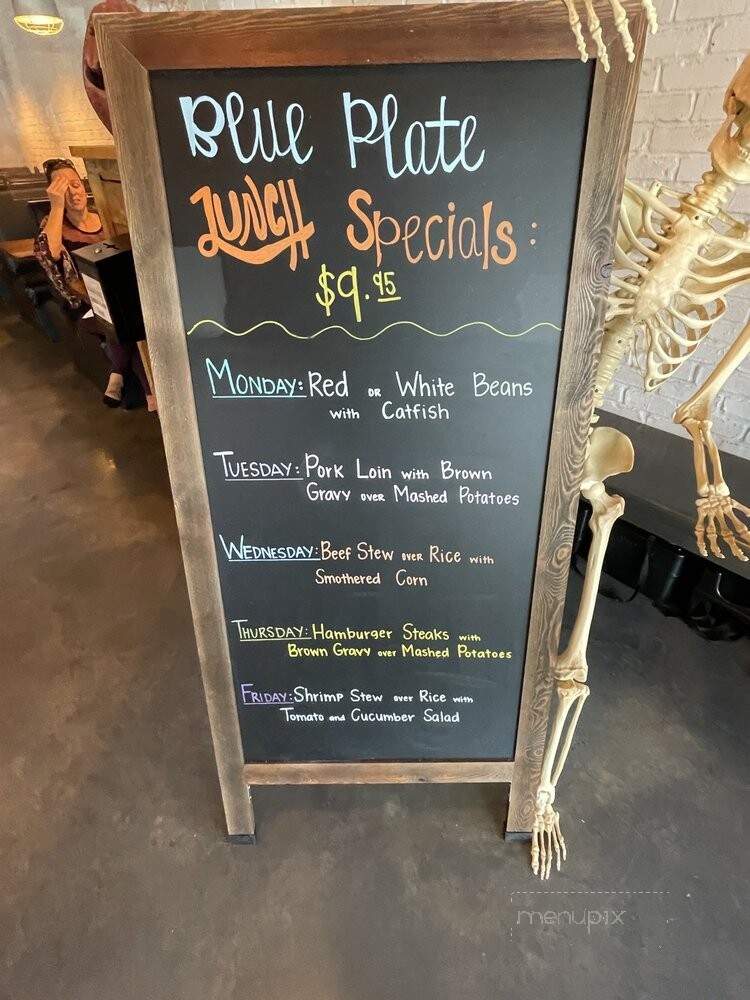 Blue Plate
LUNCH Specials:
$9.95
MONDAY: Red OR White Beans
with Catfish
TUESDAY: Pork Loin with Brown
Gravy OVER Mashed Potatoes
WEDNESDAY: Beef Stew OVER Rice with
Smothered Corn
THURSDAY: Hamburger Steaks with
Brown Gravy over Mashed Potatoes
FRIDAY: Shrimp Stew over Rice with
Tomato and Cucumber Salad
menupix